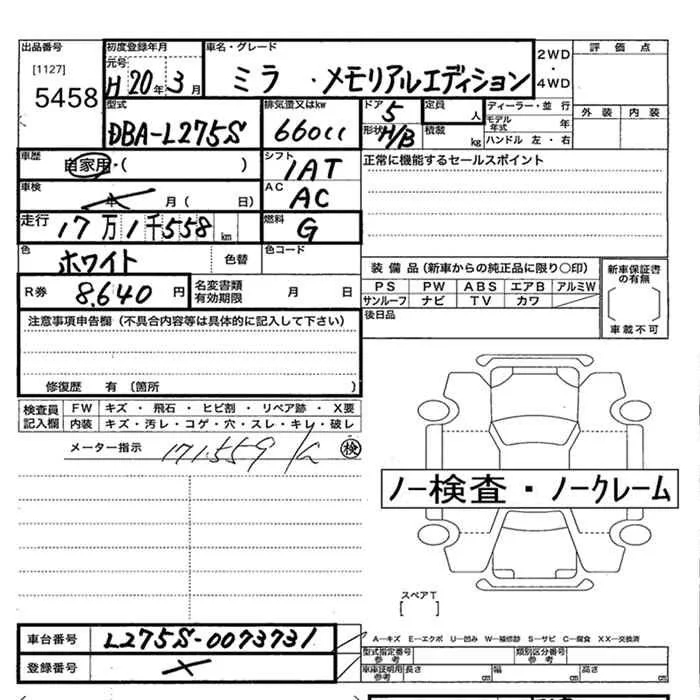 出品番号
[1127]
5458
初度登録年月
元号
H 20年 3月
車名・グレード
ミラ ・メモリアルエディション
2WD
・
4WD
評価点
外装 内装
型式
DBA-L275S
排気量又はkw
660cc
ドア
5
形状
H/B
定員
人
積載
kg
ディーラー・並行
モデル年式 年
ハンドル 左・右
車歴
自家用・( )
シフト
IAT
正常に機能するセールスポイント
車検
年 月( 日)
AC
AC
走行
17万1千558km
燃料
G
色
ホワイト
色替
色コード
R券
8,640円
名変書類
有効期限
月 日
装備品(新車からの純正品に限り○印)
PS PW ABS エアB アルミW
サンルーフ ナビ TV カワ ( )
新車保証書
の有無
車載不可
後日品
注意事項申告欄(不具合内容等は具体的に記入して下さい)
修復歴 有(箇所 )
検査員
記入欄
FW キズ・飛石・ヒビ割・リペア跡・X要
内装 キズ・汚レ・コゲ・穴・スレ・キレ・破レ
メーター指示
171.559
検
ノー検査・ノークレーム
スペアT
[ ]
車台番号
L275S-0073731
A−キズ E−エクボ U−凹み W−補修跡 S−サビ C−腐食 XX−交換済
型式指定番号
参考
類別区分番号
参考
登録番号
車庫証明用
参考
長さ cm 幅 cm 高さ cm